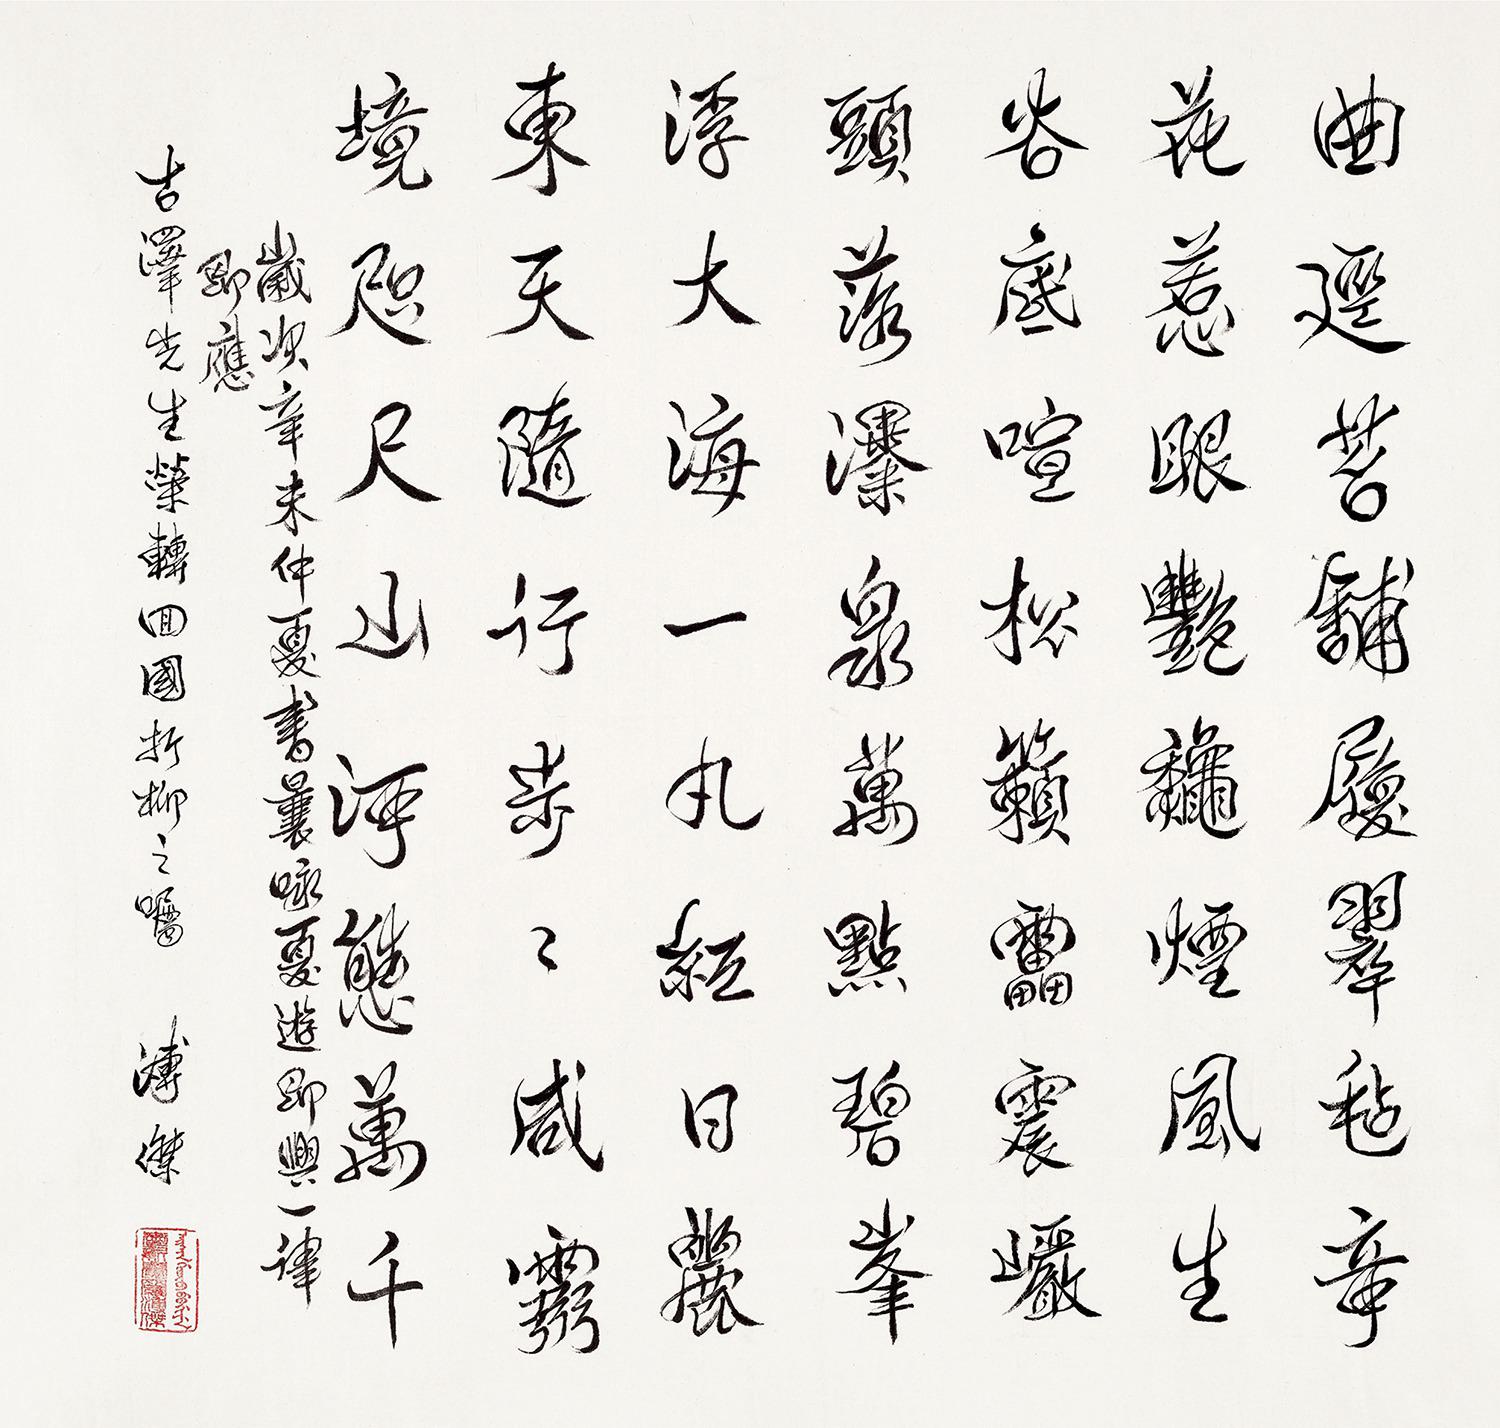 曲逕苔舖履翠毡辛
花惹眼艷龝煙風生
谷底喧松籟靁震巖
頭落瀑泉萬點碧峯
浮大海一丸紅日麗
東天隨行步〻咸靈
境咫尺山河態萬千
歲次辛未仲夏書曩咏夏遊即興一律
即應
古澤先生榮轉回國折柳之囑 溥傑